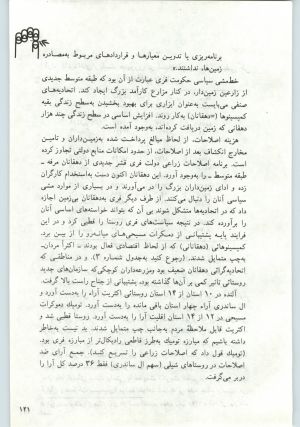 برنامه‌ریزی یا تدوین معیارها و قراردادهای مربوط به‌مصادره
زمین‌ها، نداشتند.»
خط‌مشی سیاسی حکومت فری عبارت از آن بود که طبقه متوسط جدیدی
از زارعین زمین‌دار، در کنار مزارع کارآمد بزرگ ایجاد کند. اتحادیه‌های
صنفی می‌بایست به‌عنوان ابزاری برای بهبود بخشیدن به‌سطح زندگی بقیه
کمپسینوها («دهقانان») به‌کار روند. افزایش اساسی در سطح زندگی چند هزار
دهقانی که زمین دریافت کرده‌اند، به‌وجود آمده است.
هزینه اصلاحات، از لحاظ مبالغ پرداخت شده به‌زمین‌داران و تامین
مخارج انکشاف بعد از اصلاحات، از حدود امکانات منابع دولتی تجاوز کرده
است. برنامه اصلاحات زراعی دولت فری قشر جدیدی از دهقانان مرفه ـ
طبقه متوسط ـ را به‌وجود آورد. این دهقانان اکنون دست به‌استخدام کارگران
زده و ادای زمین‌داران بزرگ را در می‌آورند و در بسیاری از موارد مشی
سیاسی آنان را دنبال می‌کنند. از طرف دیگر فری به‌دهقانان بی‌زمین اجازه
داد که در اتحادیه‌ها متشکل شوند بی آن که بتواند خواسته‌های اساسی آنان
را برآورده کند. در نتیجه سیاست‌های فری روستا را قطبی کرد و در این
فرایند پایه پشتیبانی از دمکرات مسیحی‌های میانه‌رو را از بین برد.
کمپسینوهائی (دهقانانی) که از لحاظ اقتصادی فعال بودند ـ اکثراً مردان ـ
به‌چپ متمایل شدند. (رجوع کنید به‌جدول شماره ۳). و در مناطقی که
اتحادیه‌گرائی دهقانان ضعیف بود ومزرعه‌داران کوچکی‌که سازمان‌های جدید
روستائی تاثیر کمی بر آن‌ها گذاشته بود، پشتیبانی از جناح راست بالا گرفت.
آلنده در ۱۰ استان از ۱۴ استان روستائی اکثریت آراء را به‌دست آورد و
ال ساندری آراء چهار استان باقی مانده را به‌دست آورد. تومیک دموکرات
مسیحی در ۱۲ از ۱۴ استان اقلیت آرا را به‌دست آورد. روستا قطبی شد و
اکثریت قابل ملاحظهٔ مردم به‌جانب چپ متمایل شدند. بد نیست به‌خاطر
داشته باشیم که مبارزه تومیک به‌طرز قاطعی رادیکال‌تر از مبارزه فری بود.
(تومیک قول داد که اصلاحات زراعی را تسریع کند). جمع آرای ضد
اصلاحات در روستاهای شیلی (سهم ال ساندری) فقط ۳۶ درصد کل آرا را
دربر می‌گرفت.
۱۲۱